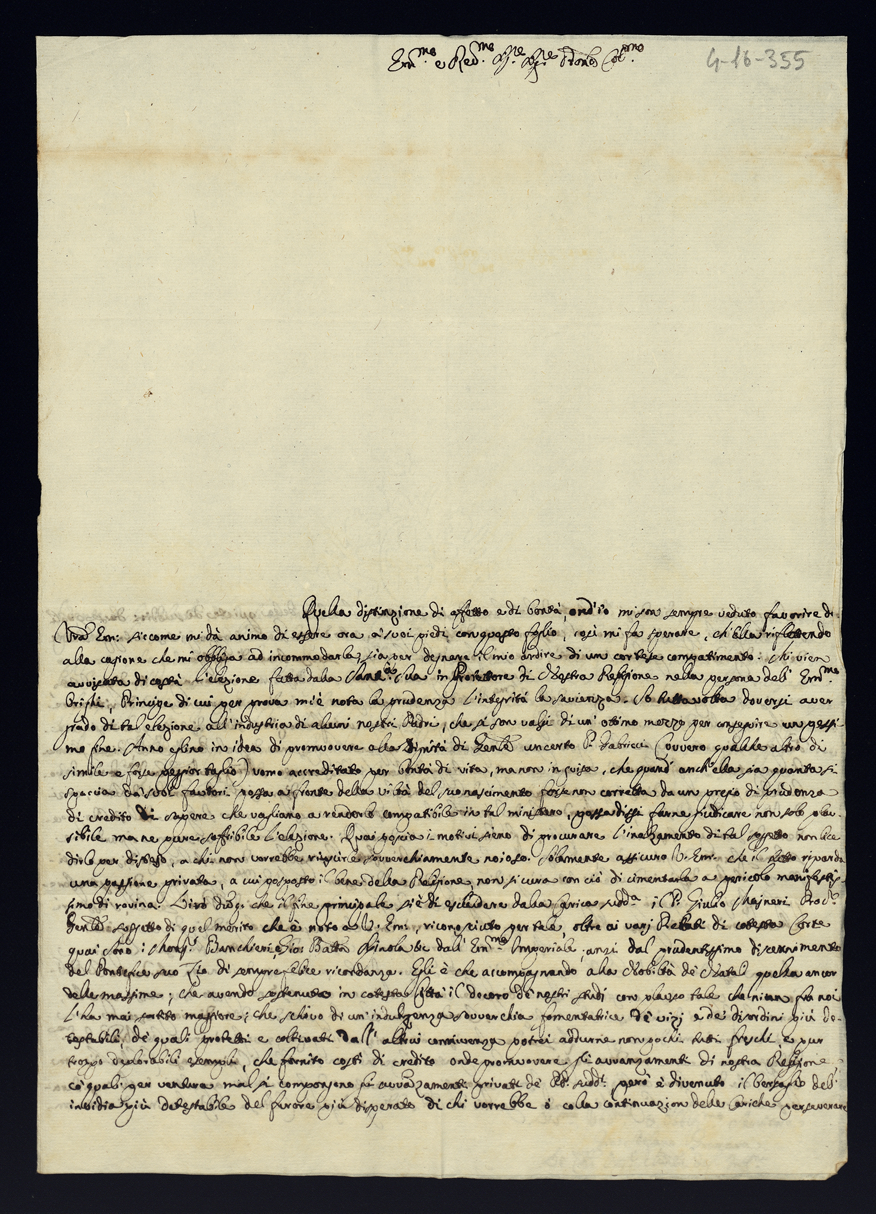 Em.mo e Rev.mo Sig.re Sig.re P.rone Col.mo
4-16-355
Quella distinzione di affetto e di bontà, ond'io mi son sempre veduto favorire da
V.ra Em: siccome mi dà animo di essere ora a' suoi piedi con questo foglio, così mi fa sperare, ch'ella riflettendo
alla cagione che mi obbliga ad incommodarla, sia per degnare il mio ardire di un cortese compatimento. Mi vien
avvisata di costì l'elezione fatta dalla Sant.tà Sua in Protettore di Nostra Religione nella persona dell' Em.mo
Orighi, Principe di cui per prova m'è nota la prudenza l'integrità la savienza. So tuttavolta doversi aver
grado di tal elezione all'industria di alcuni nostri Padri, che si son valsi di un' ottimo mezzo per conseguire un pessi-
mo fine. Anno eglino in idea di promuovere alla Dignità di Gen.le un certo P. Fabricii (ovvero qualche altro di
simile e forse peggior taglio) uomo accreditato per bontà di vita, ma non in guisa, che quand' anch'ella sia quanta si
spaccia da' suoi fautori possa a fronte della viltà del suo nascimento forse non corretta da un pregio di prudenza
di credito di sapere che vagliano a renderlo compatibile in tal ministero, farne giudicare non solo plau-
sibile ma ne pure soffribile l'elezione. Quai poscia i motivi sieno di procurare l'inalzamento di tal soggetto non lice
dirlo per disteso, a chi non vorrebbe riuscire soverchiamente noioso. Solamente assicuro V. Em: che il tutto riguarda
una passione privata, a cui posposto il bene della Religione, non si cura con ciò di cimentarla a pericolo manifestis-
simo di rovina. Dirò di più che il fine principale si è di escludere dalla carica sudd.a il P. Giulio Mayneri Proc.r
Gen.le soggetto di quel merito che è noto a V. Em:, riconosciuto per tale, oltre ai varj Prelati di cotesta Corte
quai sono: Mons.r Bancheri, Gio: Batta Spinola etc dall' Em.mo Imperiale, anzi dal prudentissimo discernimento
del Pontefice suo Zio di sempre felice ricordanza. Egli è che accompagnando alla Nobiltà de' Natali quella ancor
delle massime; che avendo sostenuto in cotesta Città il decoro de' nostri studi con plauso tale che niun fra noi
l'ha mai sortito maggiore; che schivo di un'indulgenza soverchia fomentatrice de' vizi e dei disordini più de-
testabili, de' quali protetti e coltivati dall' altrui connivenza potrei addurne non pochi tutti freschi, e pur
troppo deplorabili esempli, che fornito costì di credito onde promuovere gli avvanzamenti di nostra Religione
co' quali per ventura mal si compongono gli avvanzamenti privati de' PP. sudd.i però è divenuto il bersaglio dell'
invidia più detestabile del furore più disperato di chi vorrebbe o colla continuazion delle cariche perseverare